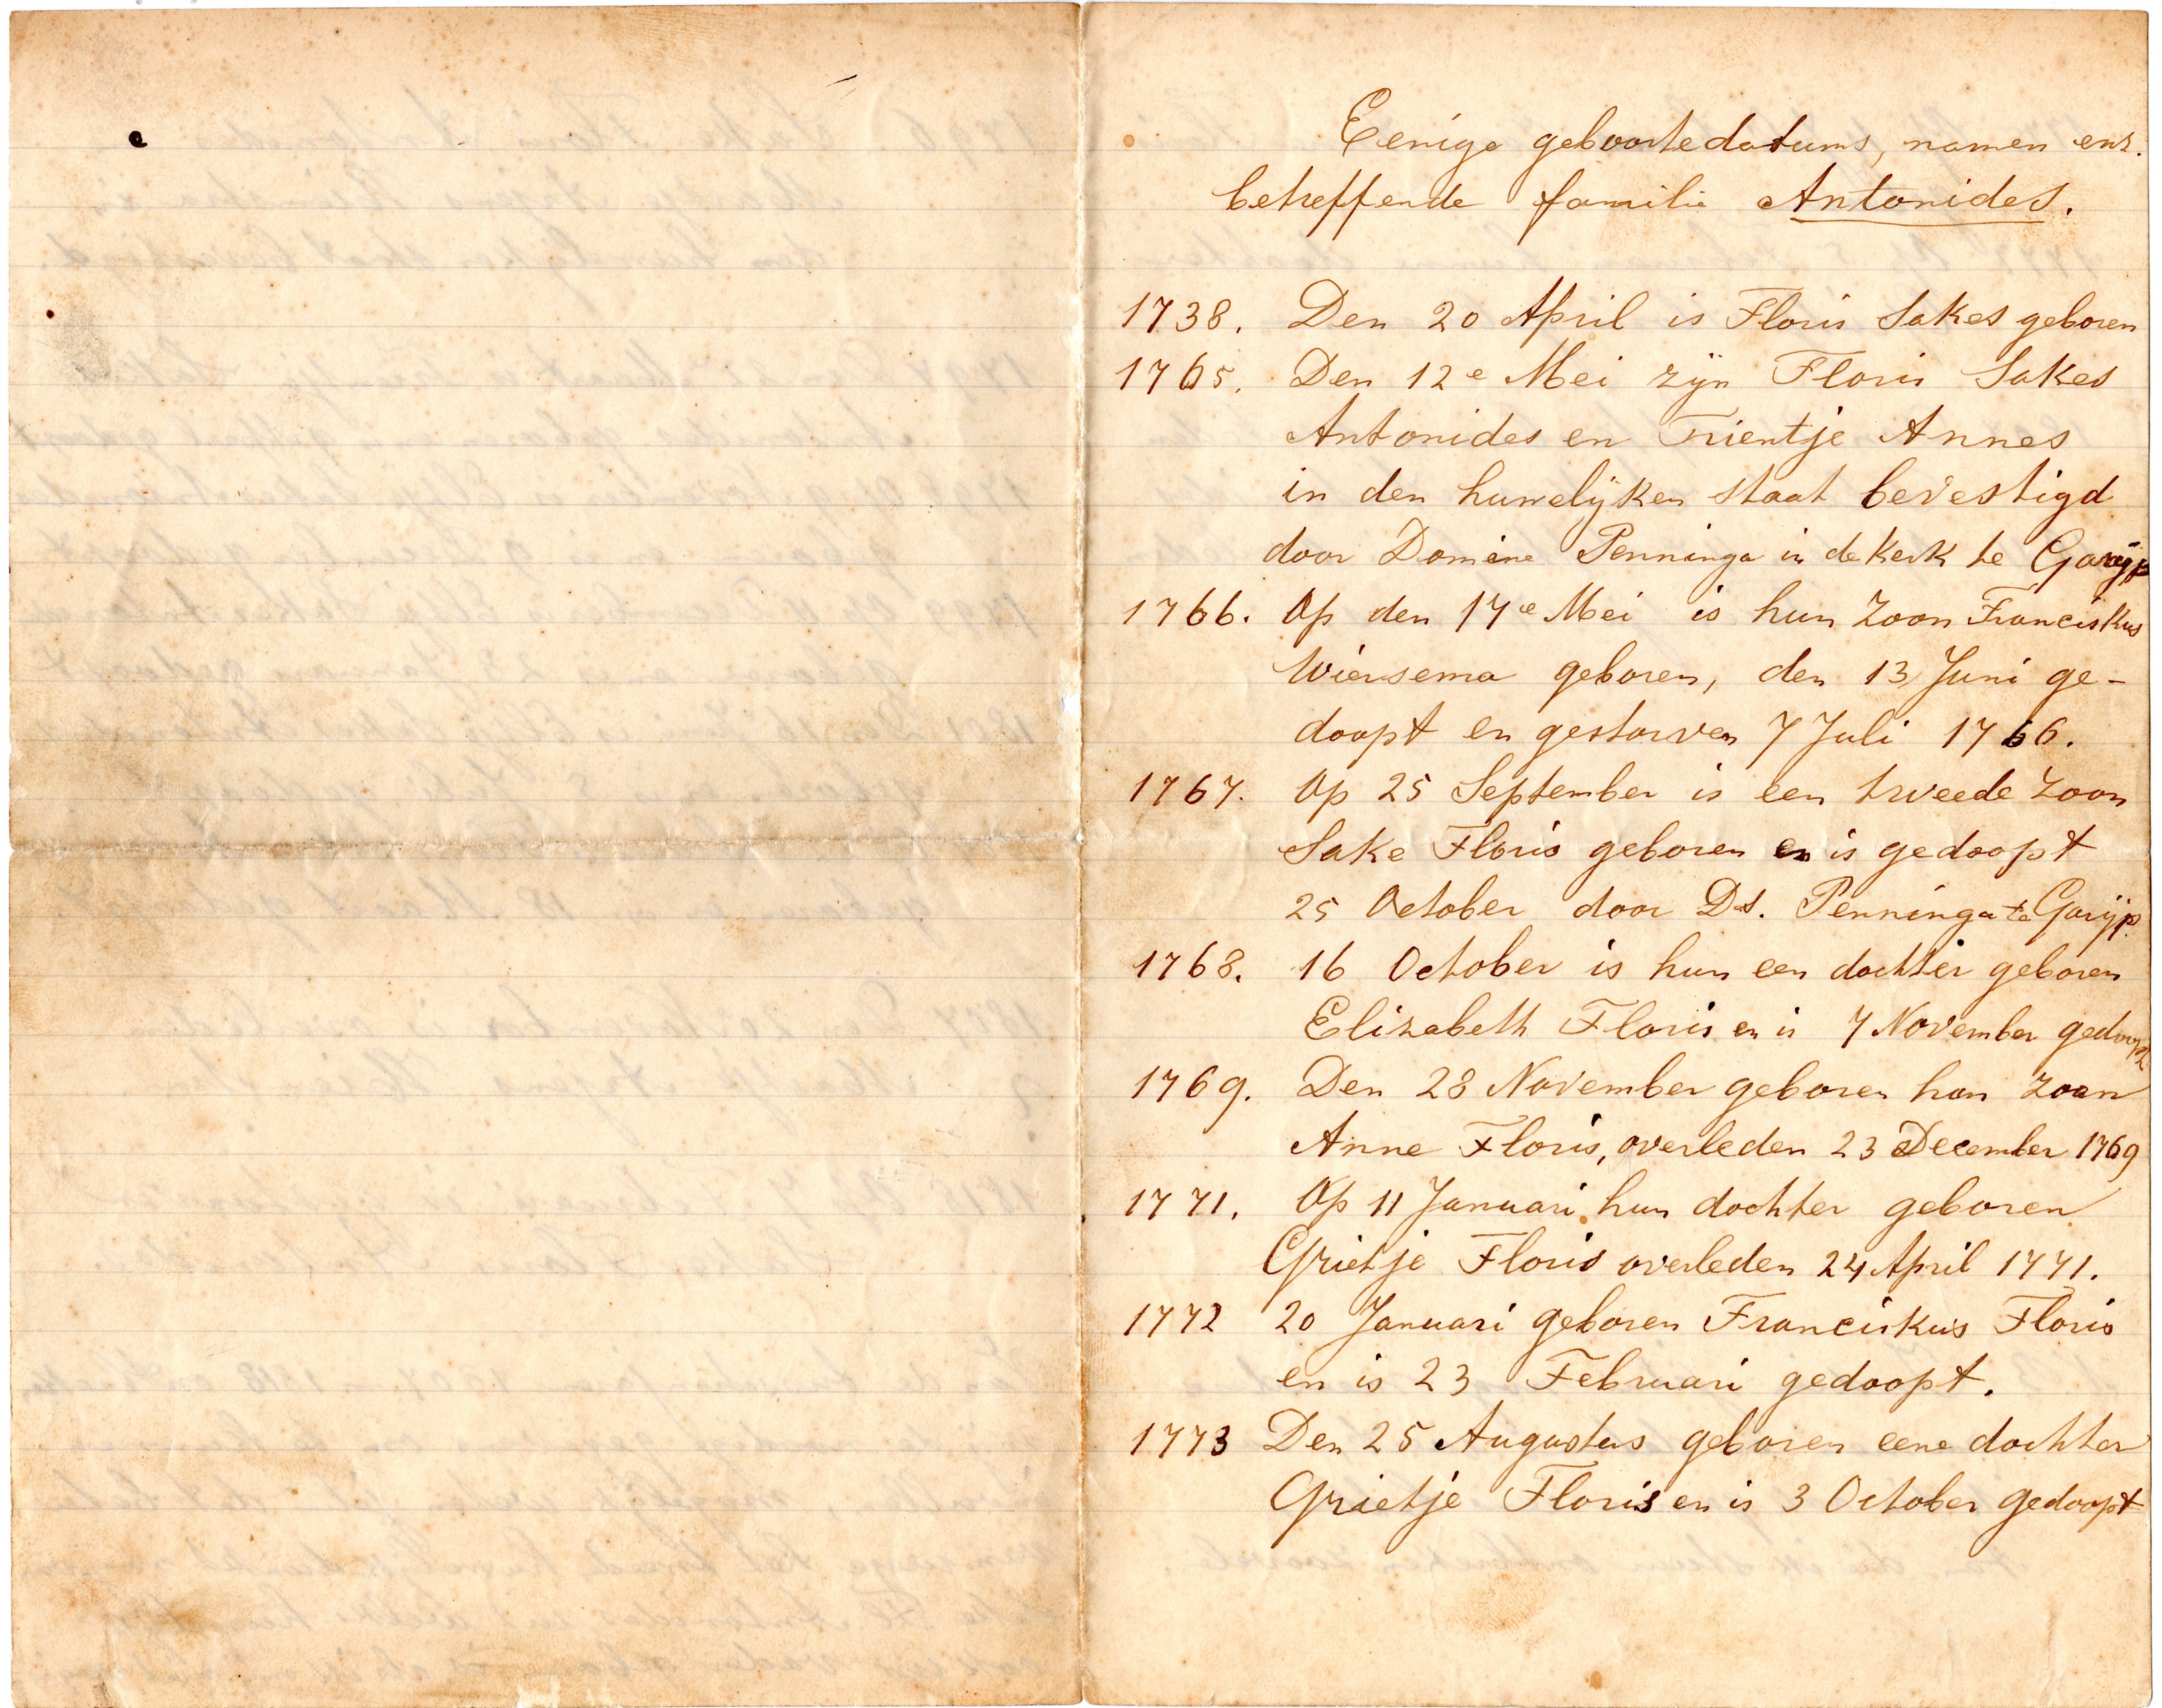 Eenige geboortedatums, namen enz.
betreffende familie Antonides.
1738. Den 20 April is Floris Sakes geboren
1765. Den 12e Mei zijn Floris Sakes
Antonides en Trientje Annes
in den huwelijken staat bevestigd
door Domine Penninga in de Kerk te Garijp
1766. Op den 17e Mei is hun zoon Franciskus
Wiersema geboren, den 13 Juni ge-
doopt en gestorven 7 Juli 1766.
1767. Op 25 September is een tweede zoon
Sake Floris geboren en is gedoopt
25 October door Ds. Penninga te Garijp.
1768. 16 October is hun een dochter geboren
Elizabeth Floris en is 7 November gedoopt
1769. Den 28 November geboren hun zoon
Anne Floris, overleden 23 December 1769
1771. Op 11 Januari hun dochter geboren
Grietje Floris overleden 24 April 1771.
1772 20 Januari geboren Franciskus Floris
en is 23 Februari gedoopt.
1773 Den 25 Augustus geboren eene dochter
Grietje Floris en is 3 October gedoopt